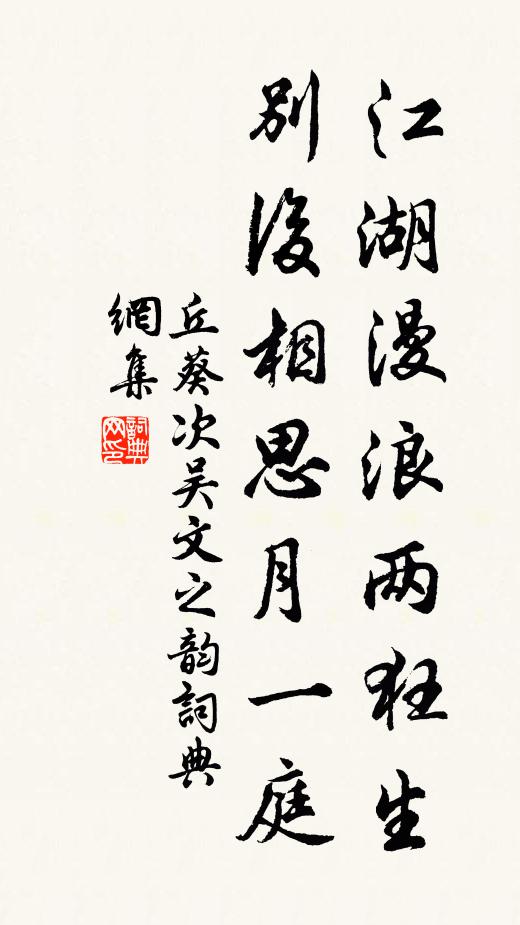 江湖漫浪两狂生
別後相思月一庭
丘葵次吴文之韵詞典
網集
詞典
网印